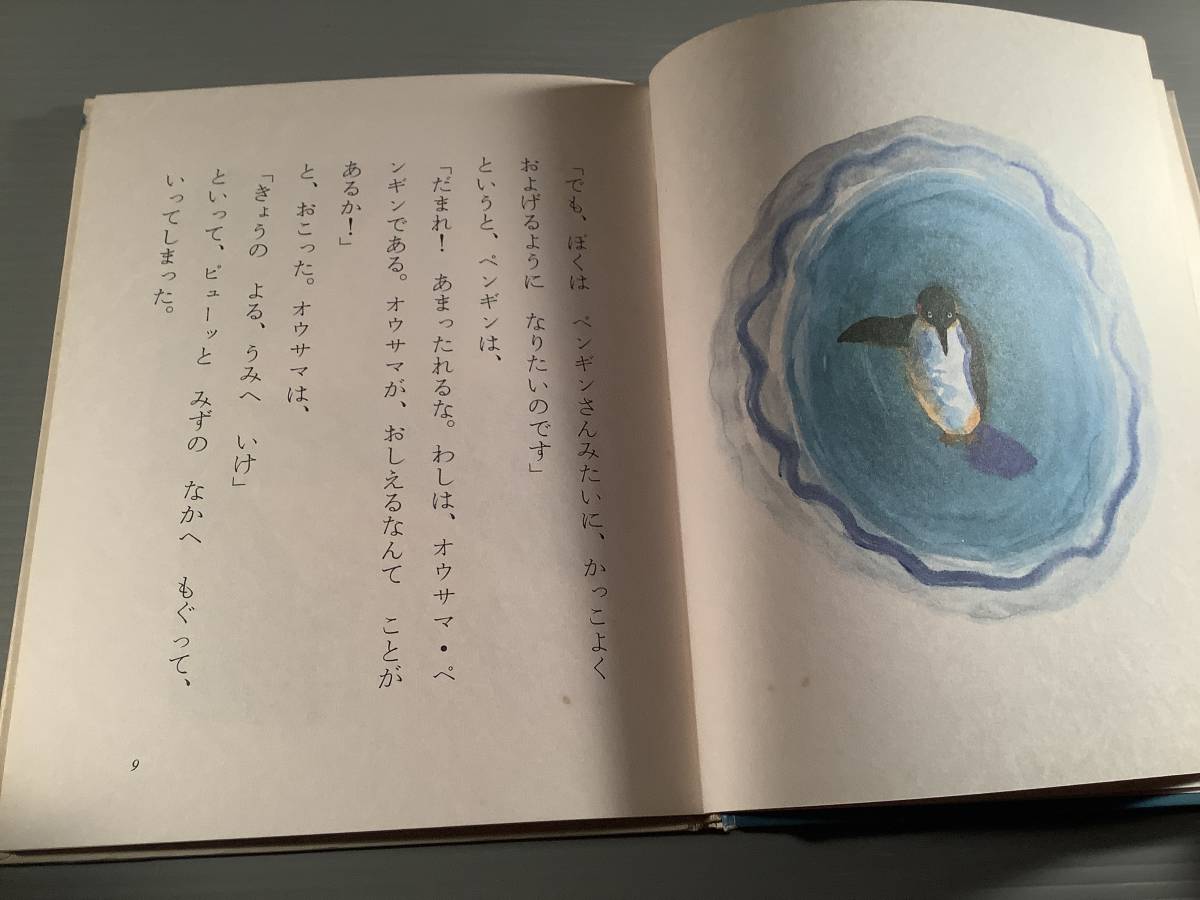 「でも、ぼくは　ペンギンさんみたいに、かっこよく
およげるように　なりたいのです」
というと、ペンギンは、
「だまれ！　あまったれるな。わしは、オウサマ・ペ
ンギンである。オウサマが、おしえるなんて　ことが
あるか！」
と、おこった。オウサマは、
「きょうの　よる、うみへ　いけ」
といって、ピューッと　みずの　なかへ　もぐって、
いってしまった。
9